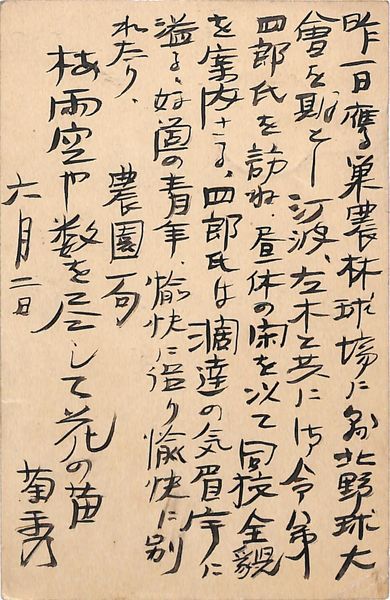 昨一日鷹巣農林球場に於北野球大
會を期とし江波、左木と共に御令弟
四郎氏を訪ね、昼休の間を以て同校全貌
を案内さる、四郎氏は濶達の気眉宇に
溢る、好箇の青年、愉快に逅り愉快に別
れたり、
農園一句
梅雨空や数を尽して花の苗
六月二日
菊秀